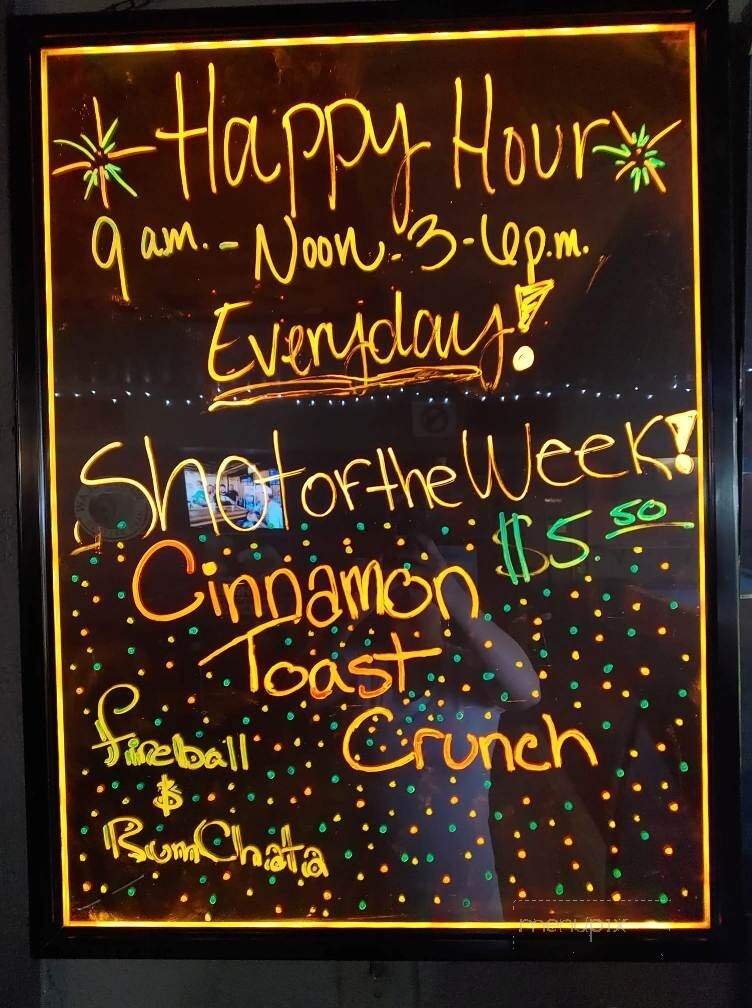 Happy Hour
9 am. - Noon. 3-6p.m.
Everyday!
Shot of the Week!
$5.50
Cinnamon
Toast
Crunch
Fireball
&
RumChata
menupix